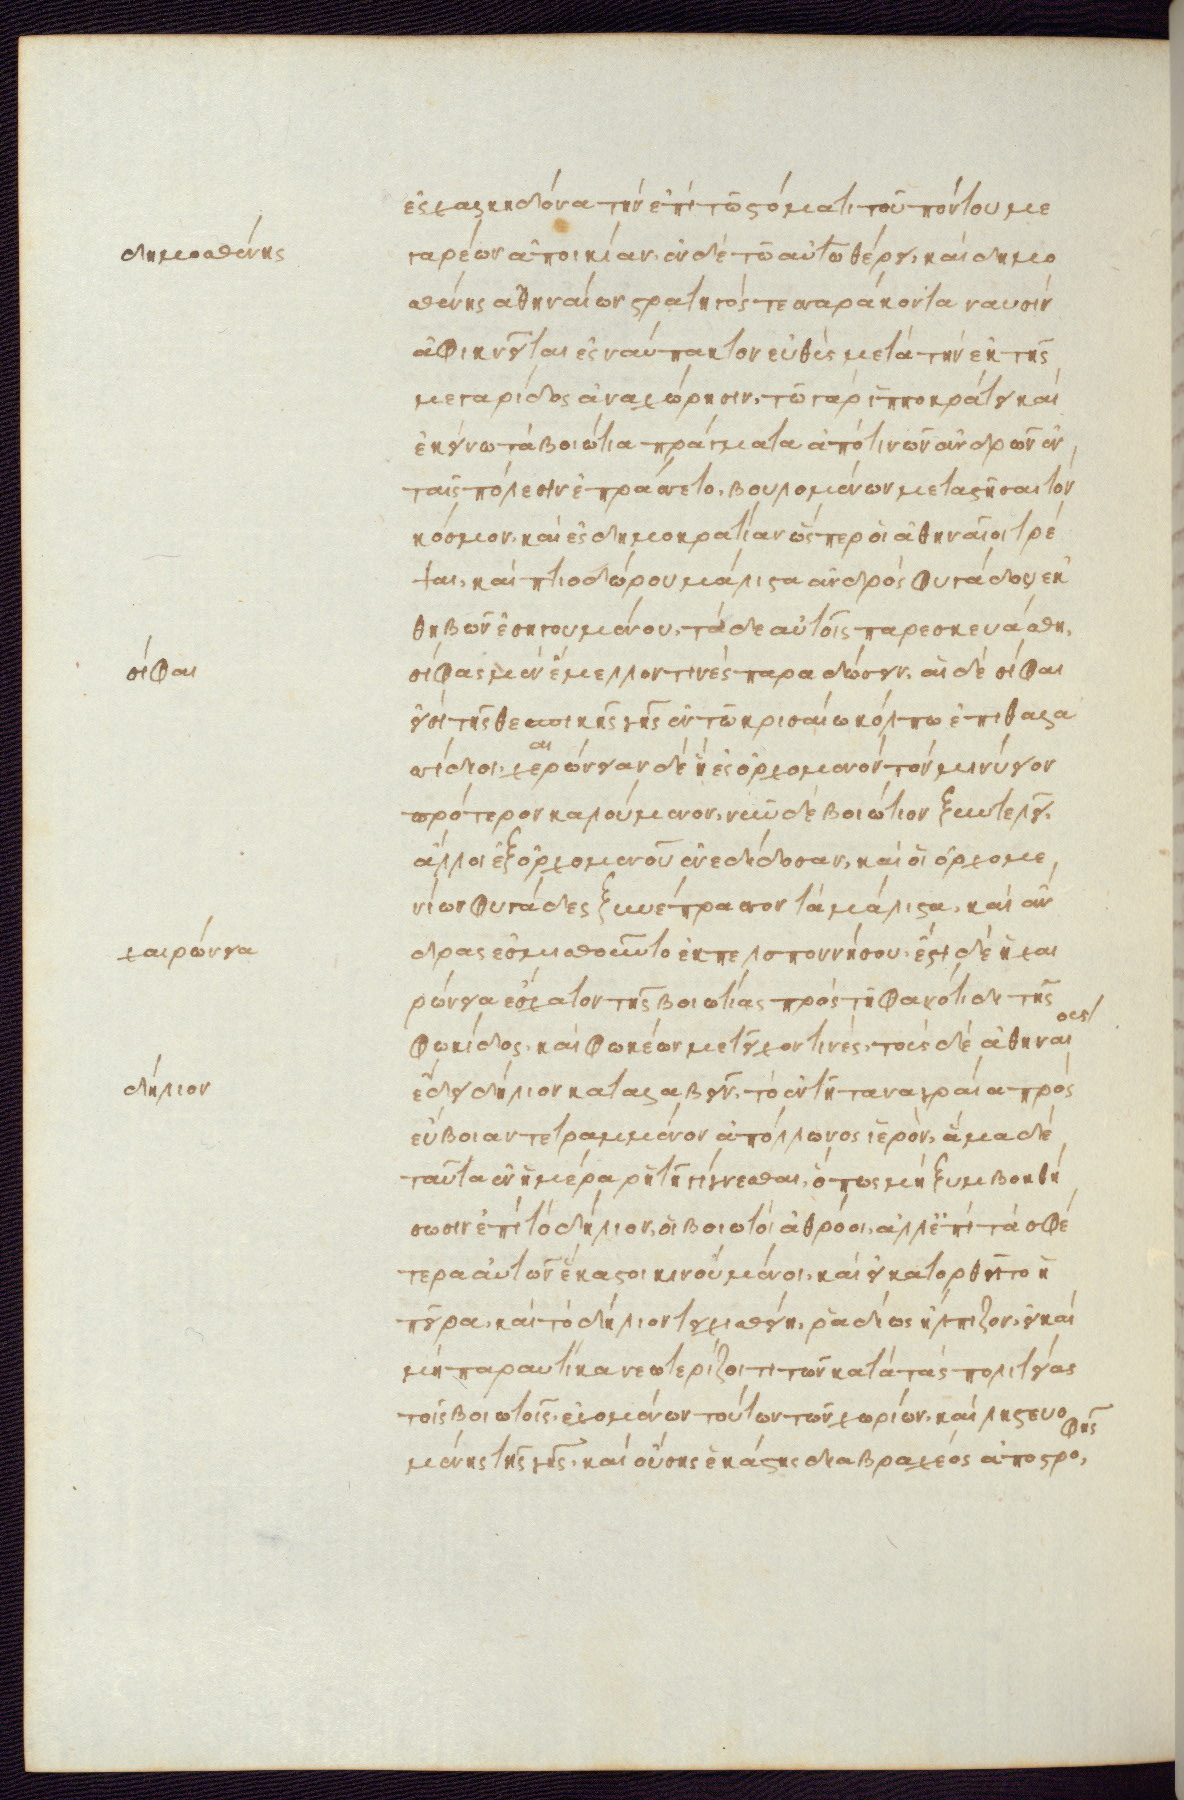 ἐς χαλκηδόνα τὴν ἐπὶ τῶ στόματι τοῦ πόντου με
γαρέων ἀποικίαν. ἐν δὲ τῶ αὐτῶ θέρει, καὶ δημο
δημοσθένης
σθένης ἀθηναίων στρατηγὸς τεσσαράκοντα ναυσὶν
ἀφικνεῖται ἐς ναύπακτον εὐθὺς μετὰ τὴν ἐκ τῆς
μεγαρίδος ἀναχώρησιν. τῶ γὰρ ἱπποκράτει καὶ
ἐκείνω τὰ βοιώτια πράγματα ἀπό τινων ἀνδρῶν ἐν
ταῖς πόλεσιν ἐπράσσετο, βουλομένων μεταστῆσαι τὸν
κόσμον, καὶ ἐς δημοκρατίαν ὥσπερ οἱ ἀθηναῖοι τρέ
ψαι, καὶ πτιοδώρου μάλιστα ἀνδρὸς φυγάδος ἐκ
θηβῶν ἐσηγουμένου, τάδε αὐτοῖς παρεσκευάσθη.
σίφας μὲν ἔμελλον τινὲς παραδώσειν. αἱ δὲ σίφαι
σίφαι
εἰσὶ τῆς θεσπικῆς γῆς ἐν τῶ κρισαίω κόλπω ἐπιθαλα
σσίδιοι. χαιρώνειαν δὲ ἣ ἐς ὀρχομενὸν τὸν μινύειον
πρότερον καλούμενον, νῦν δὲ βοιώτιον ξυντελεῖ,
ἄλλοι ἐξ ὀρχομενοῦ ἐνεδίδοσαν, καὶ οἱ ὀρχομε
νίων φυγάδες ξυνέπρασσον τὰ μάλιστα, καὶ ἄν
δρας ἐμισθοῦντο ἐκ πελοποννήσου. ἔστι δὲ ἡ χαι
χαιρώνεια
ρώνεια ἔσχατον τῆς βοιωτίας πρὸς τῆ φανότιδι τῆς
φωκίδος. καὶ φωκέων μετεῖχον τινές. τοὺς δὲ ἀθηναίους
ἔδει δήλιον καταλαβεῖν, τὸ ἐν τῆ ταναγραία πρὸς
δήλιον
εὔβοιαν τετραμμένον ἀπόλλωνος ἱερόν, ἅμα δὲ
ταῦτα ἐν ἡμέρα ῥητῆ γίγνεσθαι, ὅπως μὴ ξυμβοηθή
σωσιν ἐπὶ τὸ δήλιον, οἱ βοιωτοὶ ἀθρόοι, ἀλλ' ἐπὶ τὰ σφέ
τερα αὐτῶν ἕκαστοι κινούμενοι, καὶ εἰ κατορθοῖτο ἡ
πεῖρα, καὶ τὸ δήλιον τειχισθείη, ῥαδίως ἤλπιζον, εἰ καὶ
μὴ παραυτίκα νεωτερίζοι τι τῶν κατὰ τὰς πολιτείας
τοῖς βοιωτοῖς. ἐχομένων τούτων τῶν χωρίων, καὶ ληστευο
μένης τῆς γῆς, καὶ οὔσης ἑκάστης διὰ βραχέος ἀποστροφῆς